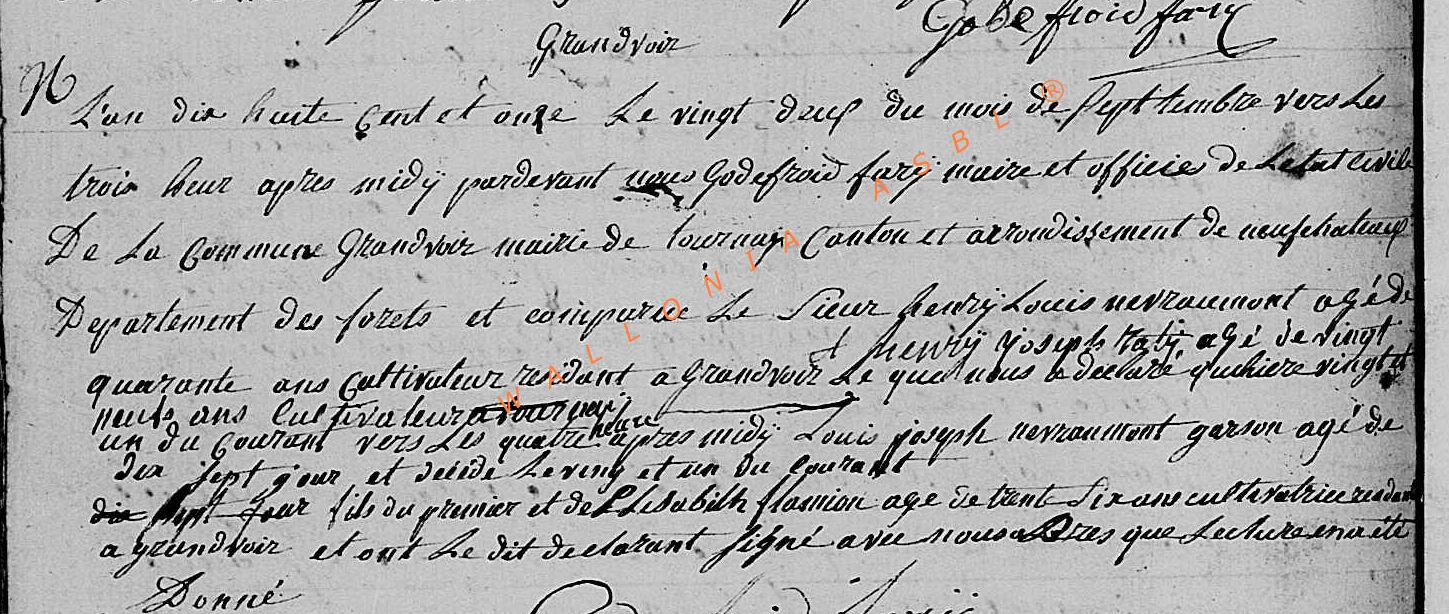 Godefroid fary
Grandvoir
N
L'an dix huite Cent et onze Le vingt deux du mois de Septtembre vers Les
trois heur apres midÿ pardevant nous Godefroid farÿ maire et officier de Letat civile
De La Commune Grandvoir mairie de tournaÿ Canton et arrondissement de neufchateaux
Departement des forets et comparue Le Sieur henrÿ Louis nevraumont agé de
et henrÿ joseph ÿ agé de vingt
quarante ans Cultivateur residant a Grandvoir Le quel nous a declaré quhiere vingt et
neufs ans Cultivateur a tournaÿ
un du Courant vers Les quatre heure apres midÿ Louis joseph nevraumont garson agé de
dix sept jour et décéde Le ving et un du Courant
dix sept jour fils du premier et de Elisabith flamion age de trent Six ans cultivatrice residant
a grandvoir et ont Le dit declarant Signé avec nous apres que Lecture en a été
Donné
WALLONIA ASBL ®